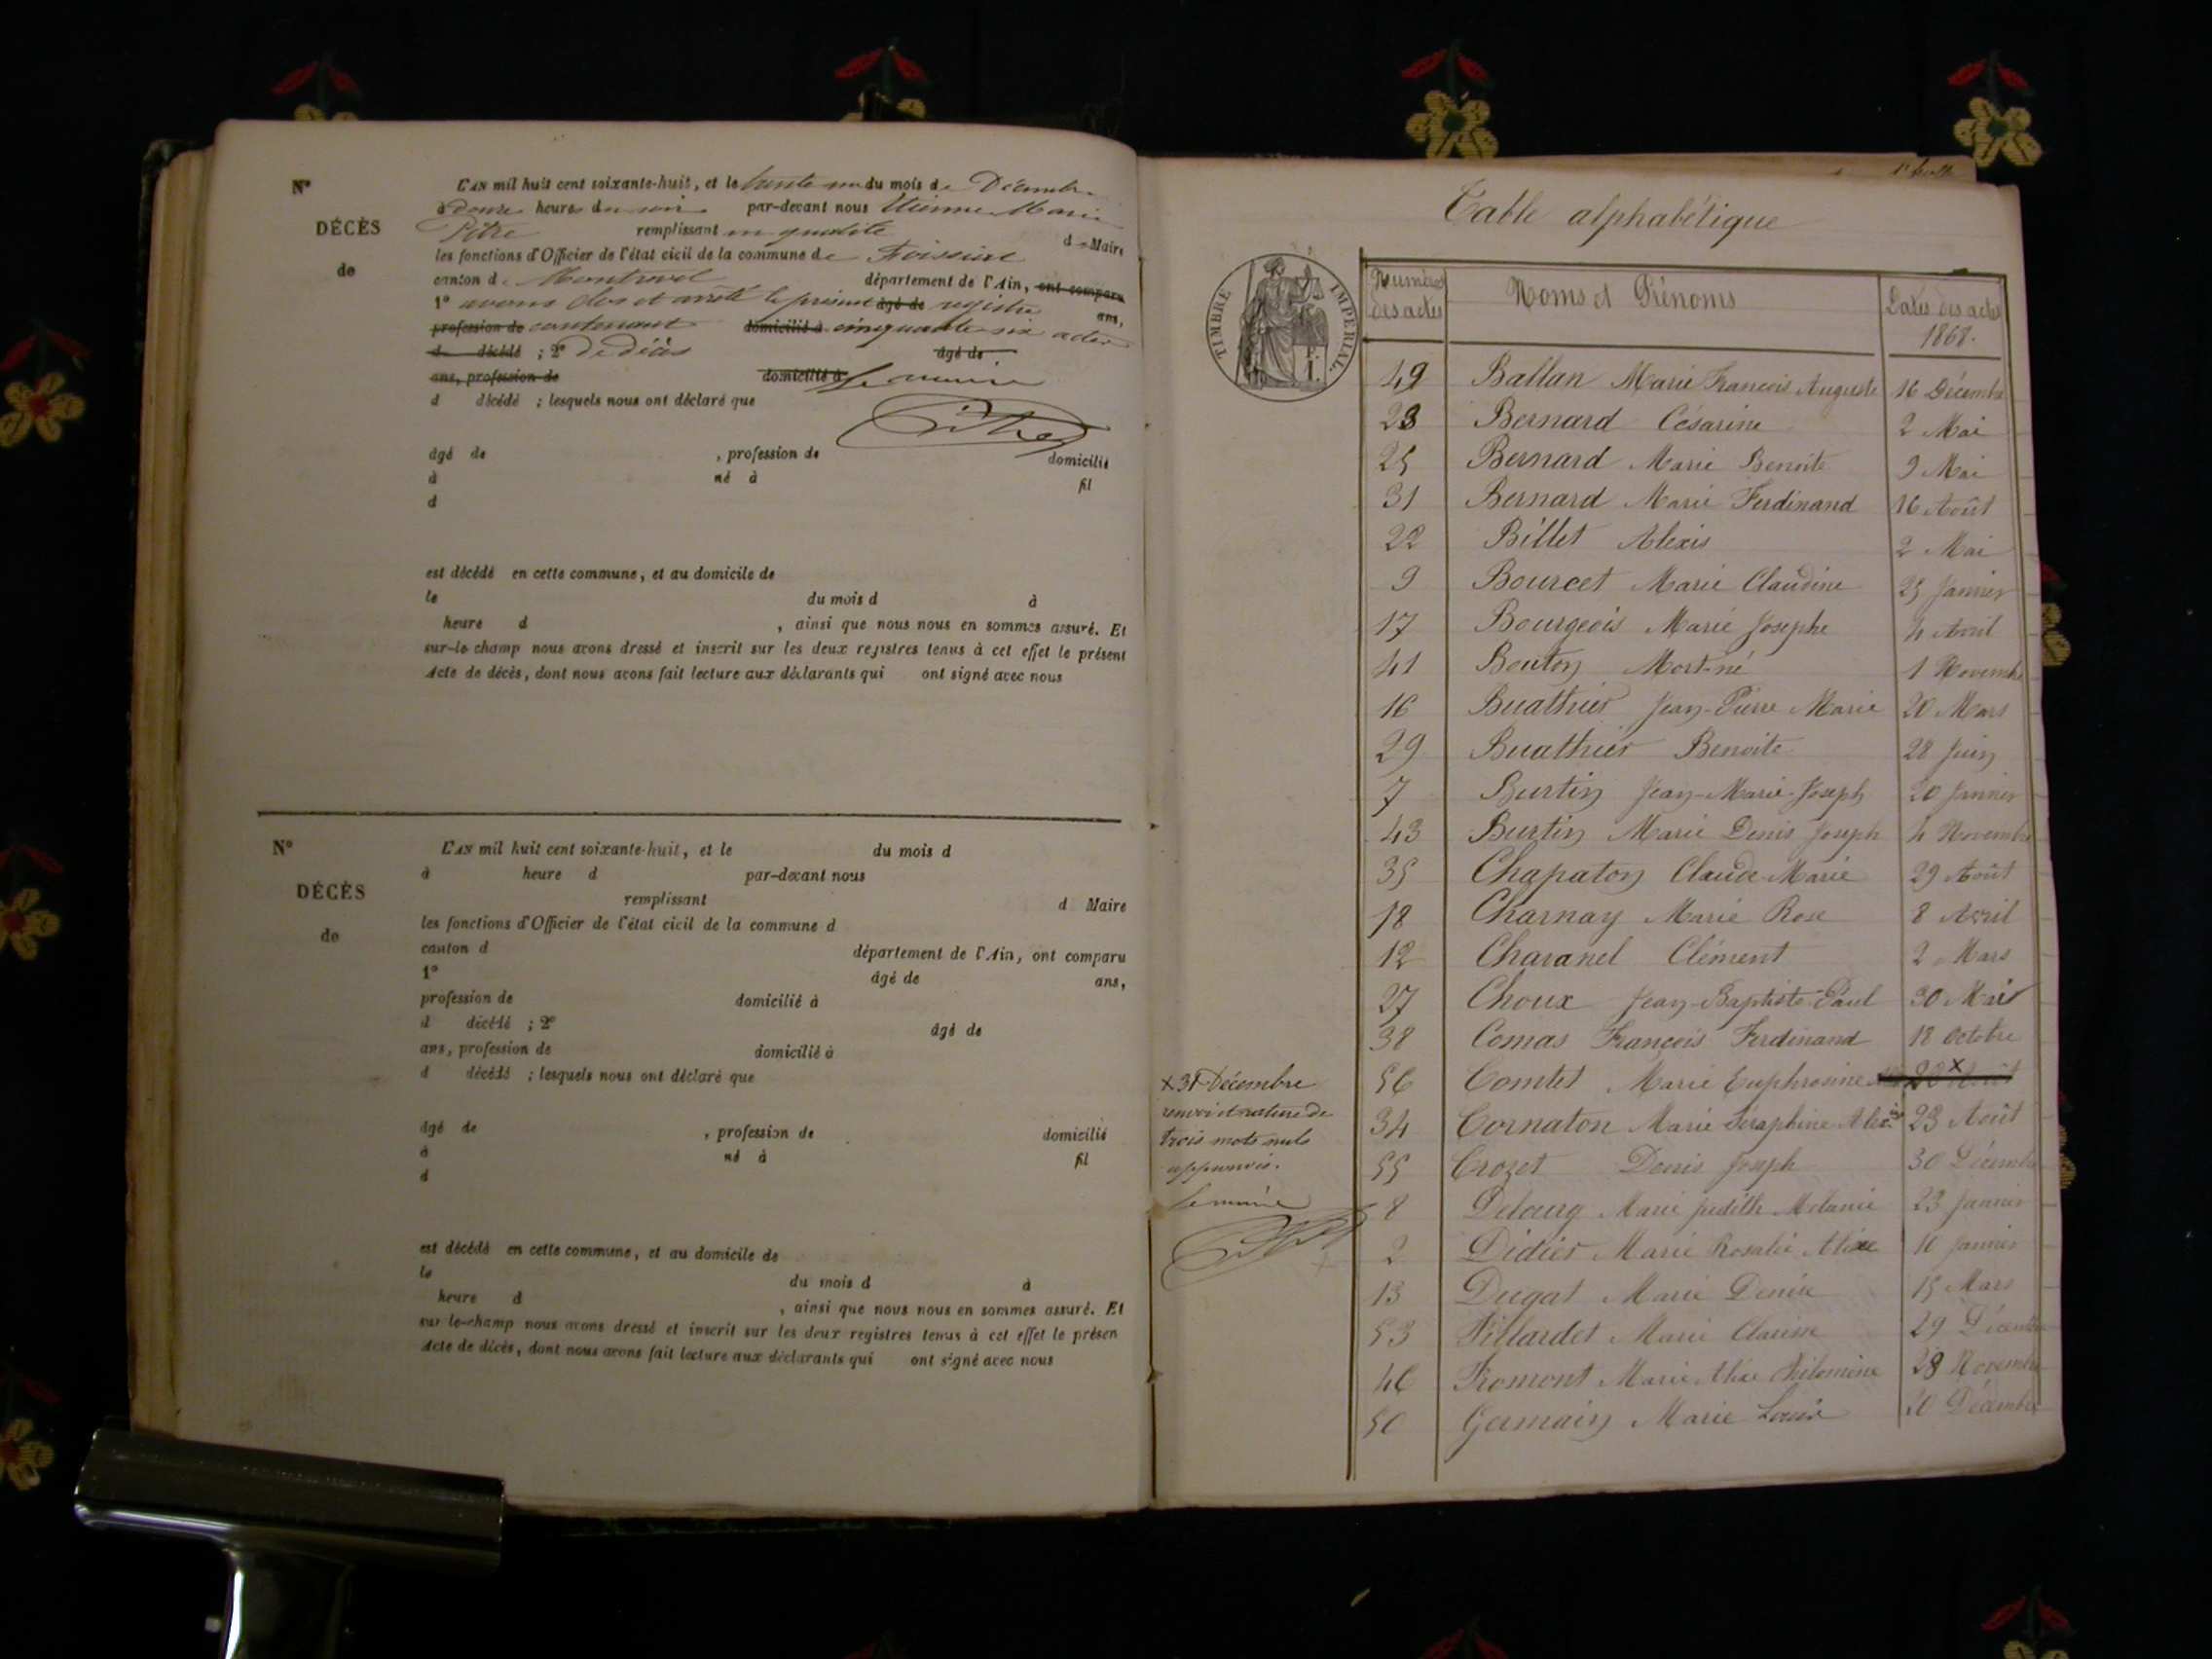 N°
DÉCÈS
de
L'AN mil huit cent soixante-huit, et le trente un du mois de Décembre
à douze heures du soir par-devant nous Etienne Marie
Pitre remplissant en qualité d Maire
les fonctions d'Officier de l'état civil de la commune de Foissiat
canton de Montrevel département de l'Ain, ont comparu
1° avons clos et arrêté le présent âgé de registre ans,
profession de contenant domicilié à cinquante six actes
d décédé ; 2° de décès âgé de
ans, profession de domicilié à Le maire
d décédé ; lesquels nous ont déclaré que
Pitre
âgé de , profession de domicilié
à né à fil
d
est décédé en cette commune, et au domicile de
le du mois d à
heure d , ainsi que nous nous en sommes assuré. Et
sur-le-champ nous avons dressé et inscrit sur les deux registres tenus à cet effet le présent
Acte de décès, dont nous avons fait lecture aux déclarants qui ont signé avec nous
N°
DÉCÈS
de
L'AN mil huit cent soixante-huit, et le du mois d
à heure d par-devant nous
remplissant d Maire
les fonctions d'Officier de l'état civil de la commune d
canton d département de l'Ain, ont comparu
1° âgé de ans,
profession de domicilié à
d décédé ; 2° âgé de
ans, profession de domicilié à
d décédé ; lesquels nous ont déclaré que
âgé de , profession de domicilié
à né à fil
d
est décédé en cette commune, et au domicile de
le du mois d à
heure d , ainsi que nous nous en sommes assuré. Et
sur le-champ nous avons dressé et inscrit sur les deux registres tenus à cet effet le présen
Acte de décès, dont nous avons fait lecture aux déclarants qui ont signé avec nous
Table alphabétique
TIMBRE IMPÉRIAL.
Numéros des actes Noms et Prénoms Dates des actes 1868.
49 Ballan Marie François Auguste 16 Décembre
23 Bernard Césarine 2 Mai
25 Bernard Marie Benoite 9 Mai
31 Bernard Marie Ferdinand 16 Août
22 Billet Alexis 2 Mai
9 Bourcet Marie Claudine 25 Janvier
17 Bourgeois Marie Josephe 4 Avril
41 Bouton Mort-né 1 Novembre
16 Buathier Jean-Pierre Marie 20 Mars
29 Buathier Benoite 28 Juin
7 Burtin Jean-Marie-Joseph 20 Janvier
43 Burtin Marie Denis Joseph 4 Novembre
35 Chapaton Claude-Marie 29 Août
18 Charnay Marie Rose 8 Avril
12 Charanel Clément 2 Mars
27 Choux Jean-Baptiste-Paul 30 Mai
38 Comas François Ferdinand 18 Octobre
56 Comtet Marie Euphrosine x
34 Cornaton Marie Séraphine Alexis 23 Août
55 Crozet Denis Joseph 30 Décembre
8 Delourg Marie Judith Mélanie 23 Janvier
2 Didier Marie Rosalie Alixe 16 Janvier
13 Dugat Marie Denise 15 Mars
53 Fillardet Marie Clarisse 29 Décembre
46 Fromont Marie Alixe Philomène 28 Novembre
50 Germain Marie Louise 20 Décembre
x 31 Décembre
renvoi et rature de
trois mots nuls
approuvés.
Le maire
Pitre